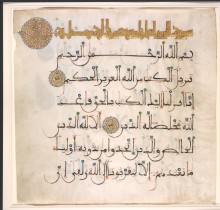 بسم الله الرحمن الرحيم
تنزيل الكتب من الله العزيز الحكيم
إنا أنزلنا إليك الكتب بالحق فاعبد
الله مخلصا له الدين ألا لله الدين
الخالص والذين اتخذوا من دونه أوليا
ما نعبدهم إلا ليقربونا إلى الله زلفى